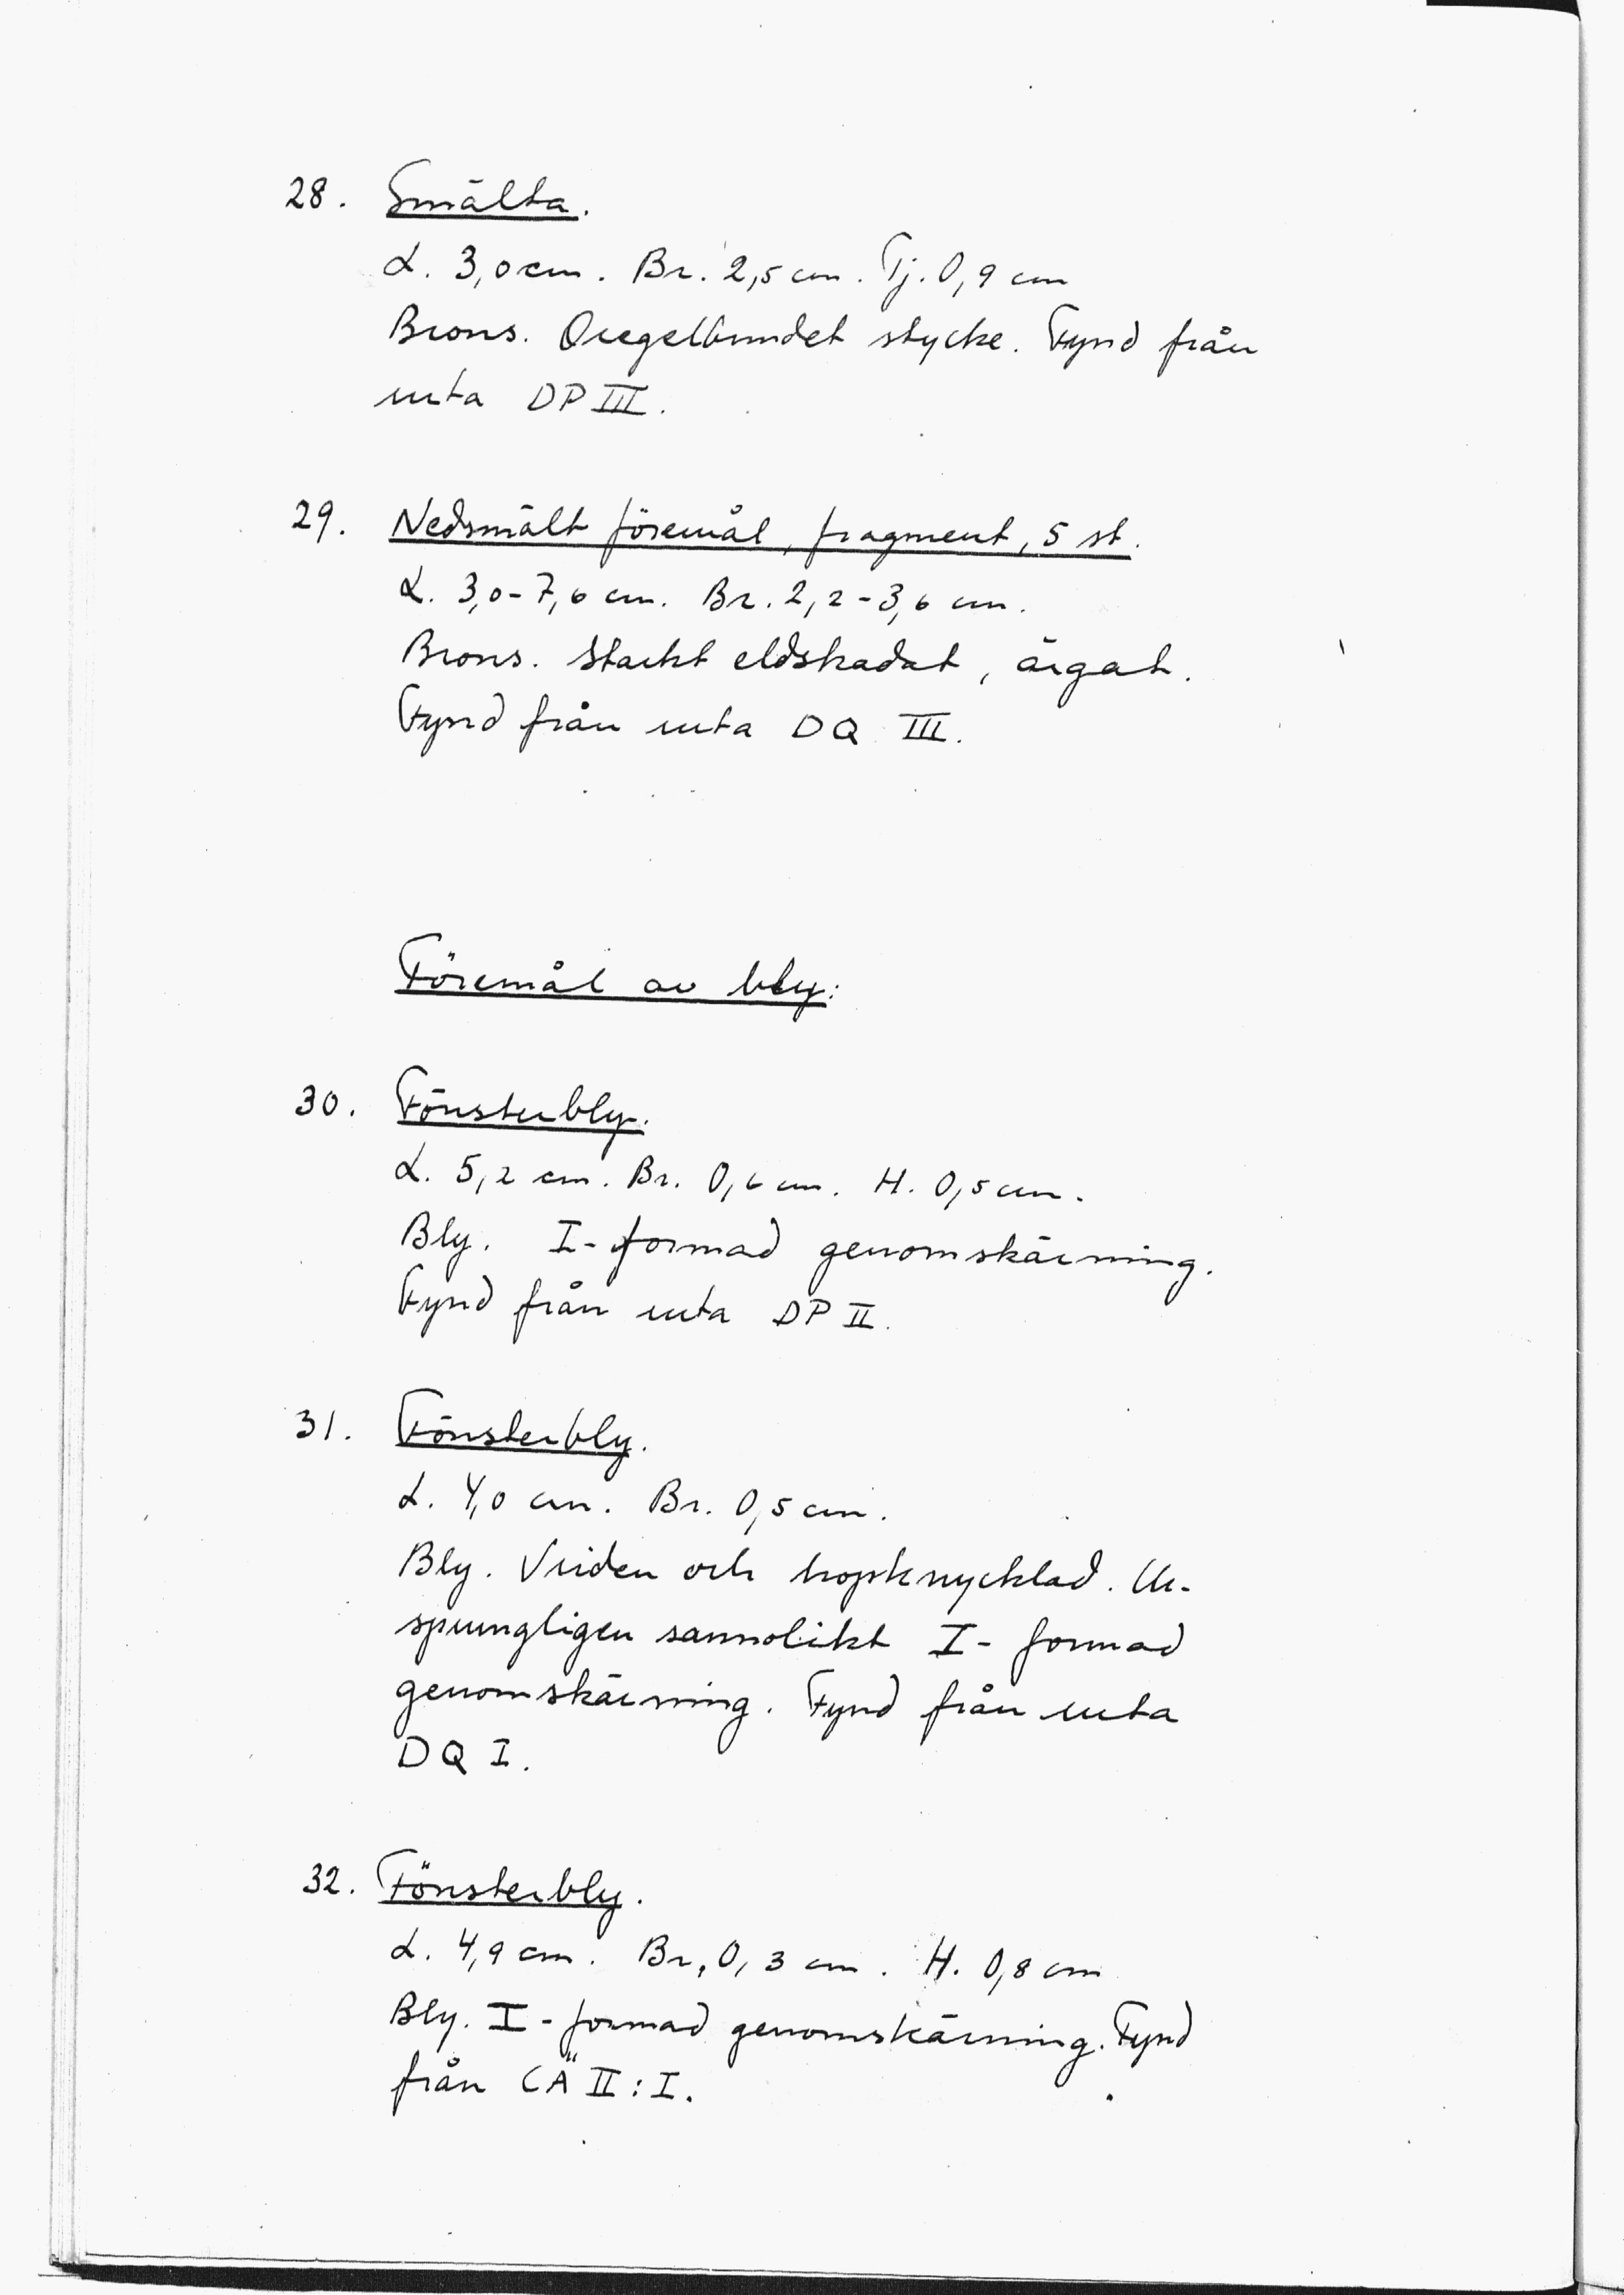 28. Smälta.
L. 3,0 cm. Br. 2,5 cm. Tj. 0,9 cm
Brons. Oregelbundet stycke. Fynd från
ruta DP III.
29. Nedsmält föremål, fragment, 5 st.
L. 3,0-7,6 cm. Br. 2,2-3,6 cm.
Brons. Starkt eldskadat, ärgat.
Fynd från ruta DQ III.
Föremål av bly:
30. Fönsterbly.
L. 5,2 cm. Br. 0,6 cm. H. 0,5 cm.
Bly. I-formad genomskärning.
Fynd från ruta DP II.
31. Fönsterbly.
L. 4,0 cm. Br. 0,5 cm.
Bly. Vriden och hopknycklad. Ur-
sprungligen sannolikt I-formad
genomskärning. Fynd från ruta
DQ I.
32. Fönsterbly.
L. 4,9 cm. Br. 0,3 cm. H. 0,8 cm
Bly. I-formad genomskärning. Fynd
från CÄ II:I.